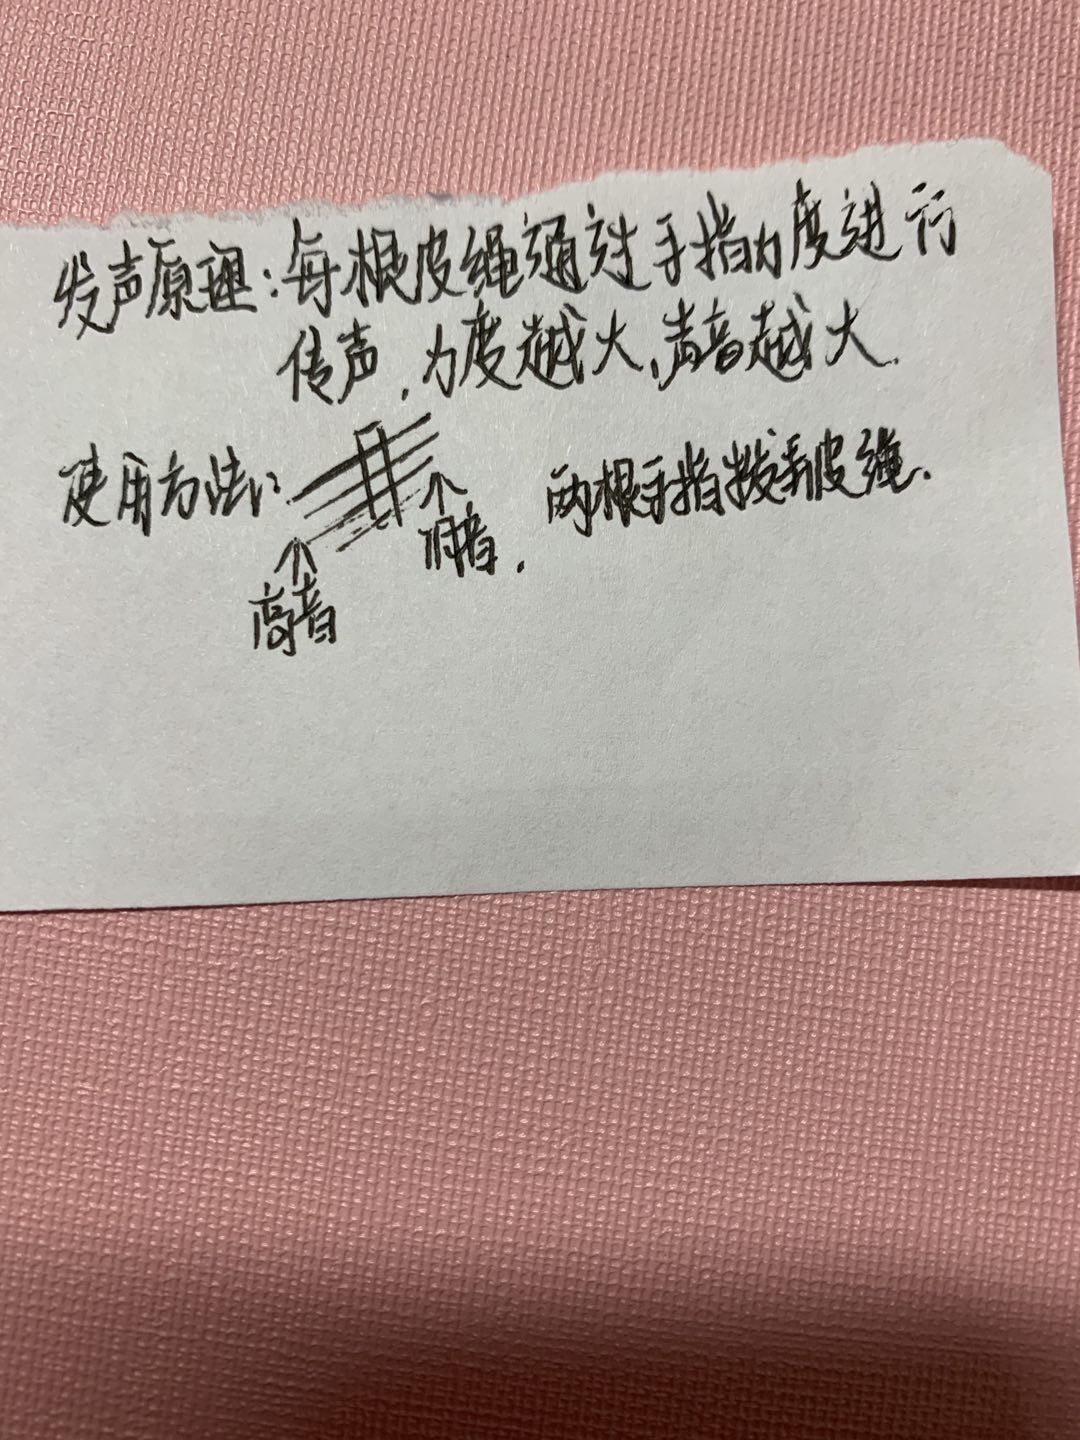 发声原理:每根皮绳通过手指力度进行
传声,力度越大,声音越大.
使用方法:
两根手指拨弄皮绳.
高音